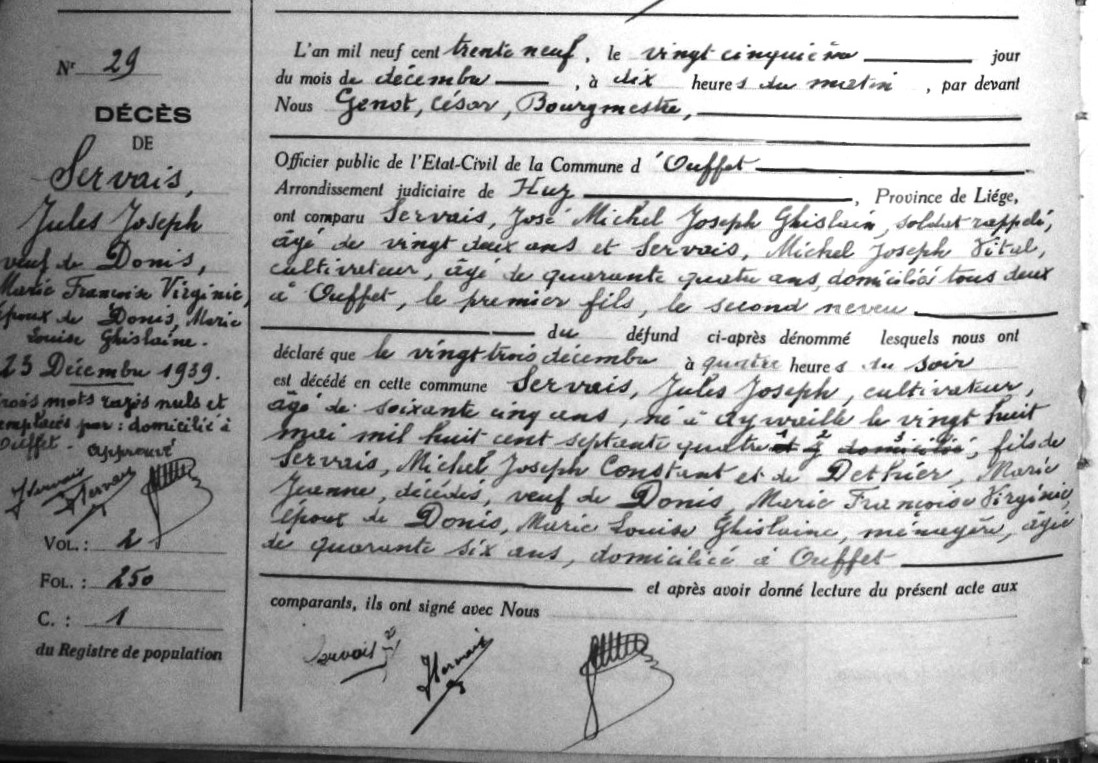 Nr 29
DÉCÈS
DE
Servais,
Jules Joseph
veuf de Donis,
Marie Françoise Virginie,
époux de Donis, Marie
Louise Ghislaine.
23 Décembre 1939.
trois mots rayés nuls et
remplacés par : domicilié à
Ouffet. approuvé
JServais
VOL. : 2
FOL. : 250
C. : 1
du Registre de population
L'an mil neuf cent trente neuf, le vingt cinquième jour
du mois de décembre, à dix heures du matin, par devant
Nous Genot, César, Bourgmestre,
Officier public de l'Etat-Civil de la Commune d'Ouffet
Arrondissement judiciaire de Huy, Province de Liége,
ont comparu Servais, José Michel Joseph Ghislain, soldat rappelé,
âgé de vingt deux ans et Servais, Michel Joseph Vital,
cultivateur, âgé de quarante quatre ans, domiciliés tous deux
à Ouffet, le premier fils, le second neveu
du défund ci-après dénommé lesquels nous ont
déclaré que le vingt trois décembre à quatre heures du soir
est décédé en cette commune Servais, Jules Joseph, cultivateur,
âgé de soixante cinq ans, né à Aywaille le vingt huit
mai mil huit cent septante quatre et y domicilié, fils de
Servais, Michel Joseph Constant et de Dethier, Marie
Jeanne, décédés, veuf de Donis, Marie Françoise Virginie,
époux de Donis, Marie Louise Ghislaine, ménagère, âgée
de quarante six ans, domiciliée à Ouffet
et après avoir donné lecture du présent acte aux
comparants, ils ont signé avec Nous
Servais J JServais